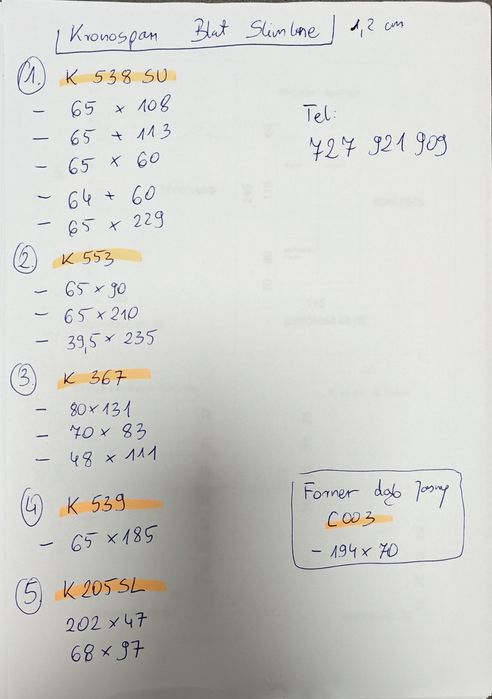 Kronospan Blat Slimline 1,2 cm
1. K 538 SU
- 65 x 108
- 65 + 113
- 65 x 60
- 64 + 60
- 65 x 229
Tel:
727 921 909
2. K 553
- 65 x 90
- 65 x 210
- 39,5 x 235
3. K 367
- 80 x 131
- 70 x 83
- 48 x 111
4. K 539
- 65 x 185
Forner dąb Jasny
C003
- 194 x 70
5. K 205 SL
202 x 47
68 x 97